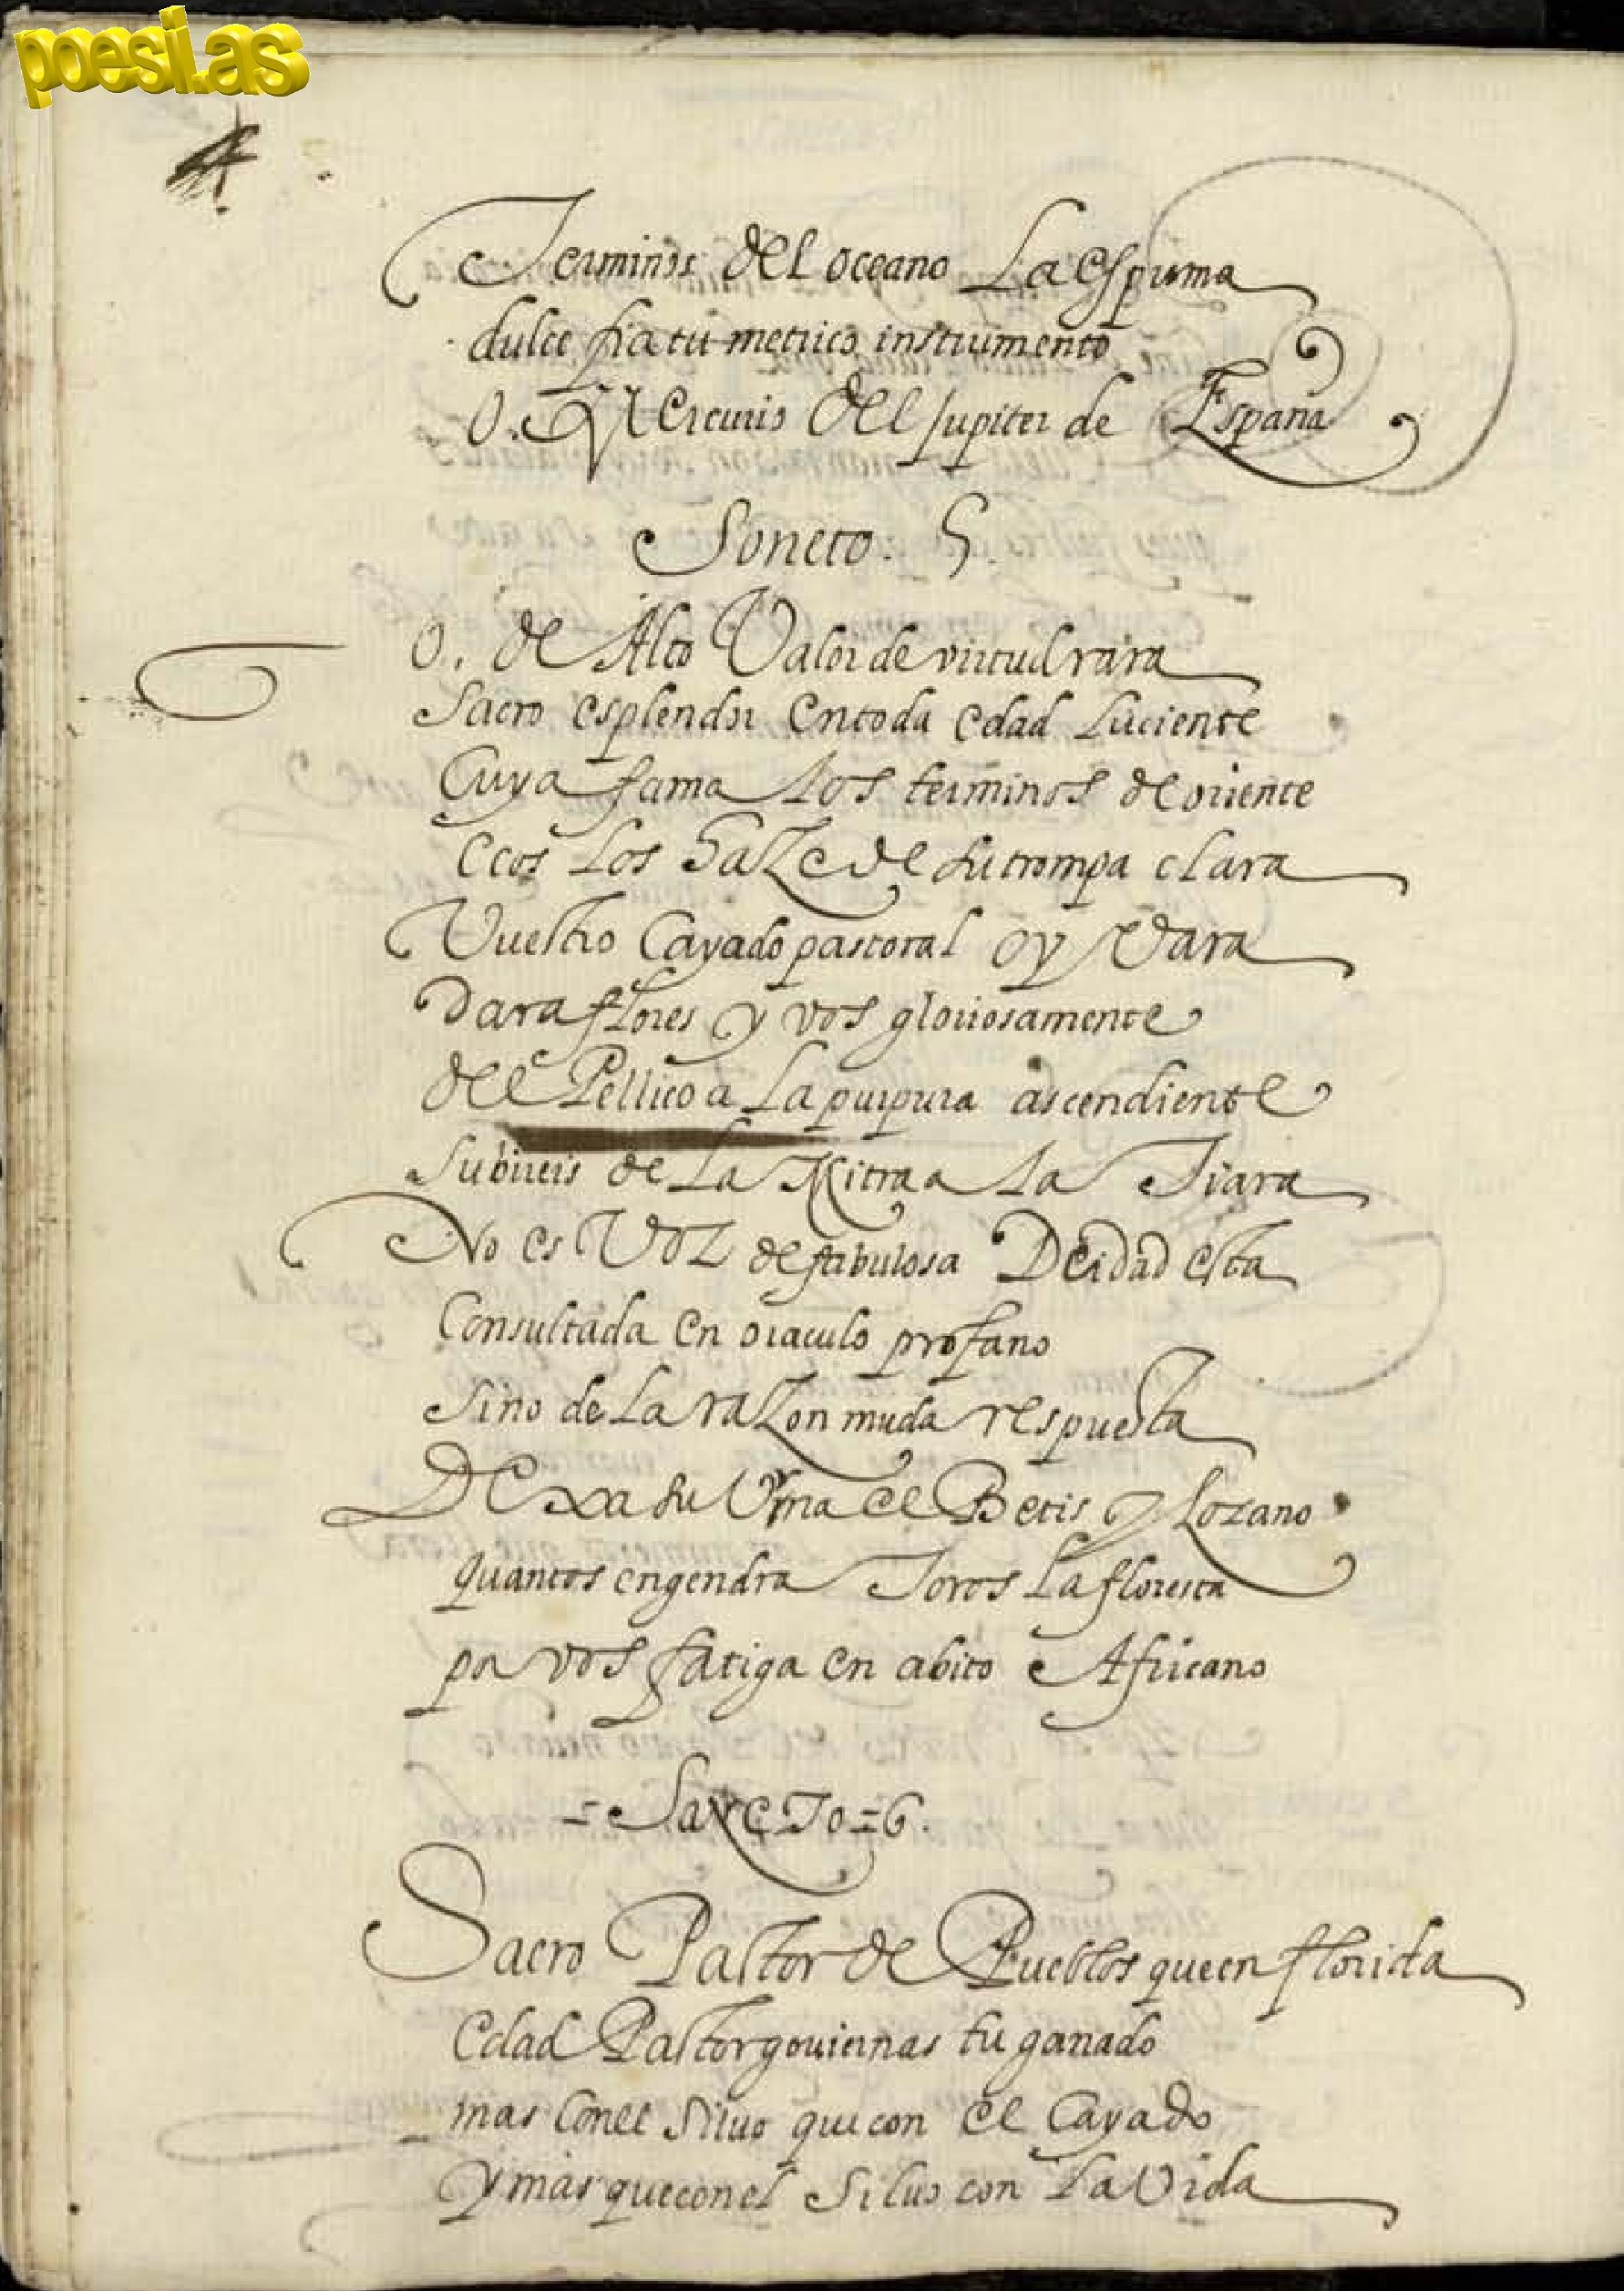 poesi.as
4
Terminos del oceano La espuma
dulce fia tu metrico instrumento
O. Mercurio del Jupiter de España
Soneto. 5.
O. de Alto Valor de virtud rara
Sacro esplendor en toda edad Luciente
Cuya fama Los terminos de oriente
ecos Los haze de su trompa clara
Vuestro Cayado pastoral oy Vara
Dara flores y vos gloriosamente
del Pellico a La purpura ascendiente
Subireis de La Mitra a La Tiara
No es Voz de fabulosa Deidad esta
Consultada en oraculo profano
Sino de La razon muda respuesta
Dexa su Vrna el Betis y Lozano
quantos engendra Toros La floresta
por vos fatiga en abito Africano
= So e To = 6.
Sacro Pastor de Pueblos que en florida
edad Pastor gouiernas tu ganado
mas Con el Siluo que con el Cayado
y mas que con el Siluo con La Vida